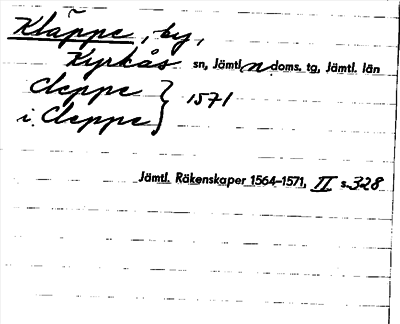 Kläppe, by,
Kyrkås sn, Jämtl. n doms. tg, Jämtl. län
cleppe } 1571
i cleppe
Jämtl. Räkenskaper 1564-1571, II s. 328